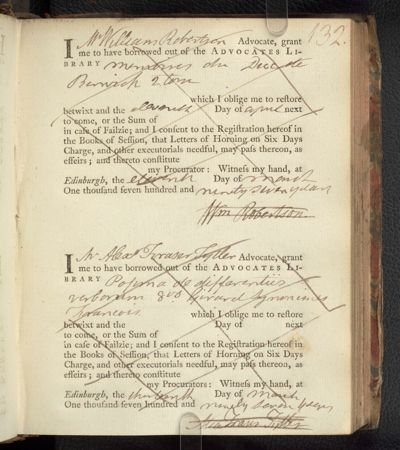 132.
I Mr William Robertson Advocate, grant
me to have borrowed out of the ADVOCATES LI-
BRARY Memoires du Duc de
Berwick 2 tom
which I oblige me to restore
betwixt and the eleventh Day of april next
to come, or the Sum of
in case of Failzie; and I consent to the Registration hereof in
the Books of Session, that Letters of Horning on Six Days
Charge, and other executorials needful, may pass thereon, as
effeirs; and thereto constitute
my Procurators: Witness my hand, at
Edinburgh, the eleventh Day of March
One thousand seven hundred and ninety seven years
Wm Robertson
I Mr Alexr Fraser Tytler Advocate, grant
me to have borrowed out of the ADVOCATES LI-
BRARY Popma de differentiis
verborum 8vo Girard Synonimes
francois which I oblige me to restore
betwixt and the Day of next
to come, or the Sum of
in case of Failzie; and I consent to the Registration hereof in
the Books of Session, that Letters of Horning on Six Days
Charge, and other executorials needful, may pass thereon, as
effeirs; and thereto constitute
my Procurators: Witness my hand, at
Edinburgh, the thirteenth Day of March
One thousand seven hundred and ninety seven years
Fraser Tytler